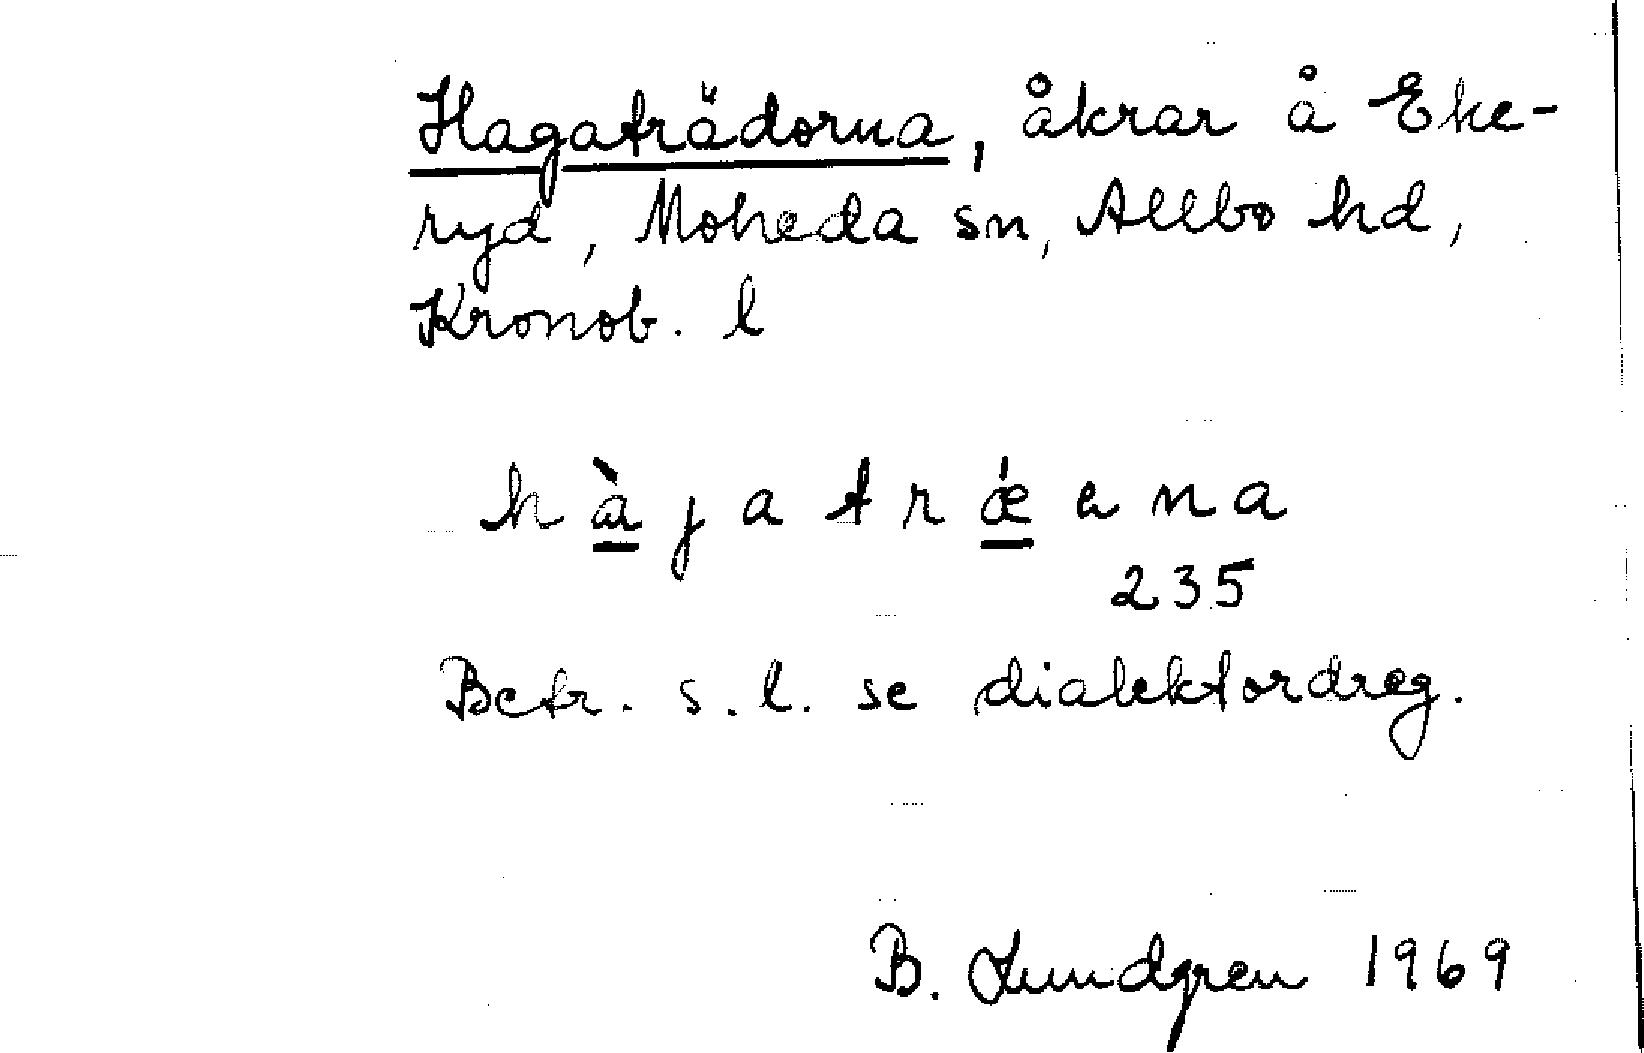 Hagaträdorna, åkrar å Eke-
ryd, Moheda sn, Allbo hd,
Kronob. l
hàjatrǽena
235
Betr. s.l. se dialektordreg.
B. Lundgren 1969